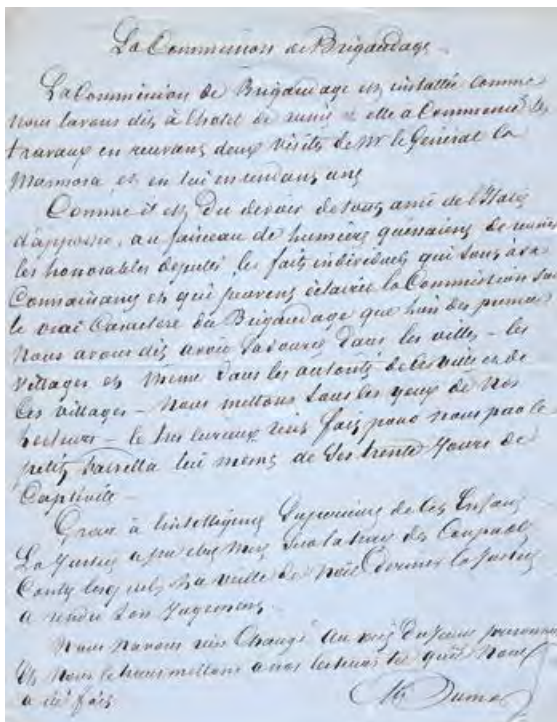 La Commission de Brigandage
La Commission de Brigandage est installée comme
nous l'avons dit à l'hôtel de et elle a Commencé
travaux en recevant deux visites de Mr le Général la
Marmora et en lui en rendant une
Comme il est du devoir de tout ami de l'Italie
d'apporter, au faisceau de lumière de
les honorables députés, les faits individuels qui sont à sa
Connaissance et qui peuvent éclairer la Commission sur
le vrai Caractère du Brigandage que
Nous avons dit avoir dans les villes – les
villages et même dans les autorités de ces villes et de
ces villages – nous mettons sous les yeux de nos
lecteurs – le très curieux récit fait pour nous par le
petit lui même de ses trente jours de
Captivité –
Grace à l'intelligence de ces Enfans
La Justice a pu être mise sur la trace des Coupables
la veille de Noël dernier la Justice
a rendu son Jugement.
Nous n'avons rien Changé au récit du jeune prisonnier
et nous le transmettons a nos lecteurs tel qu'il nous
a été fait
Alex Dumas